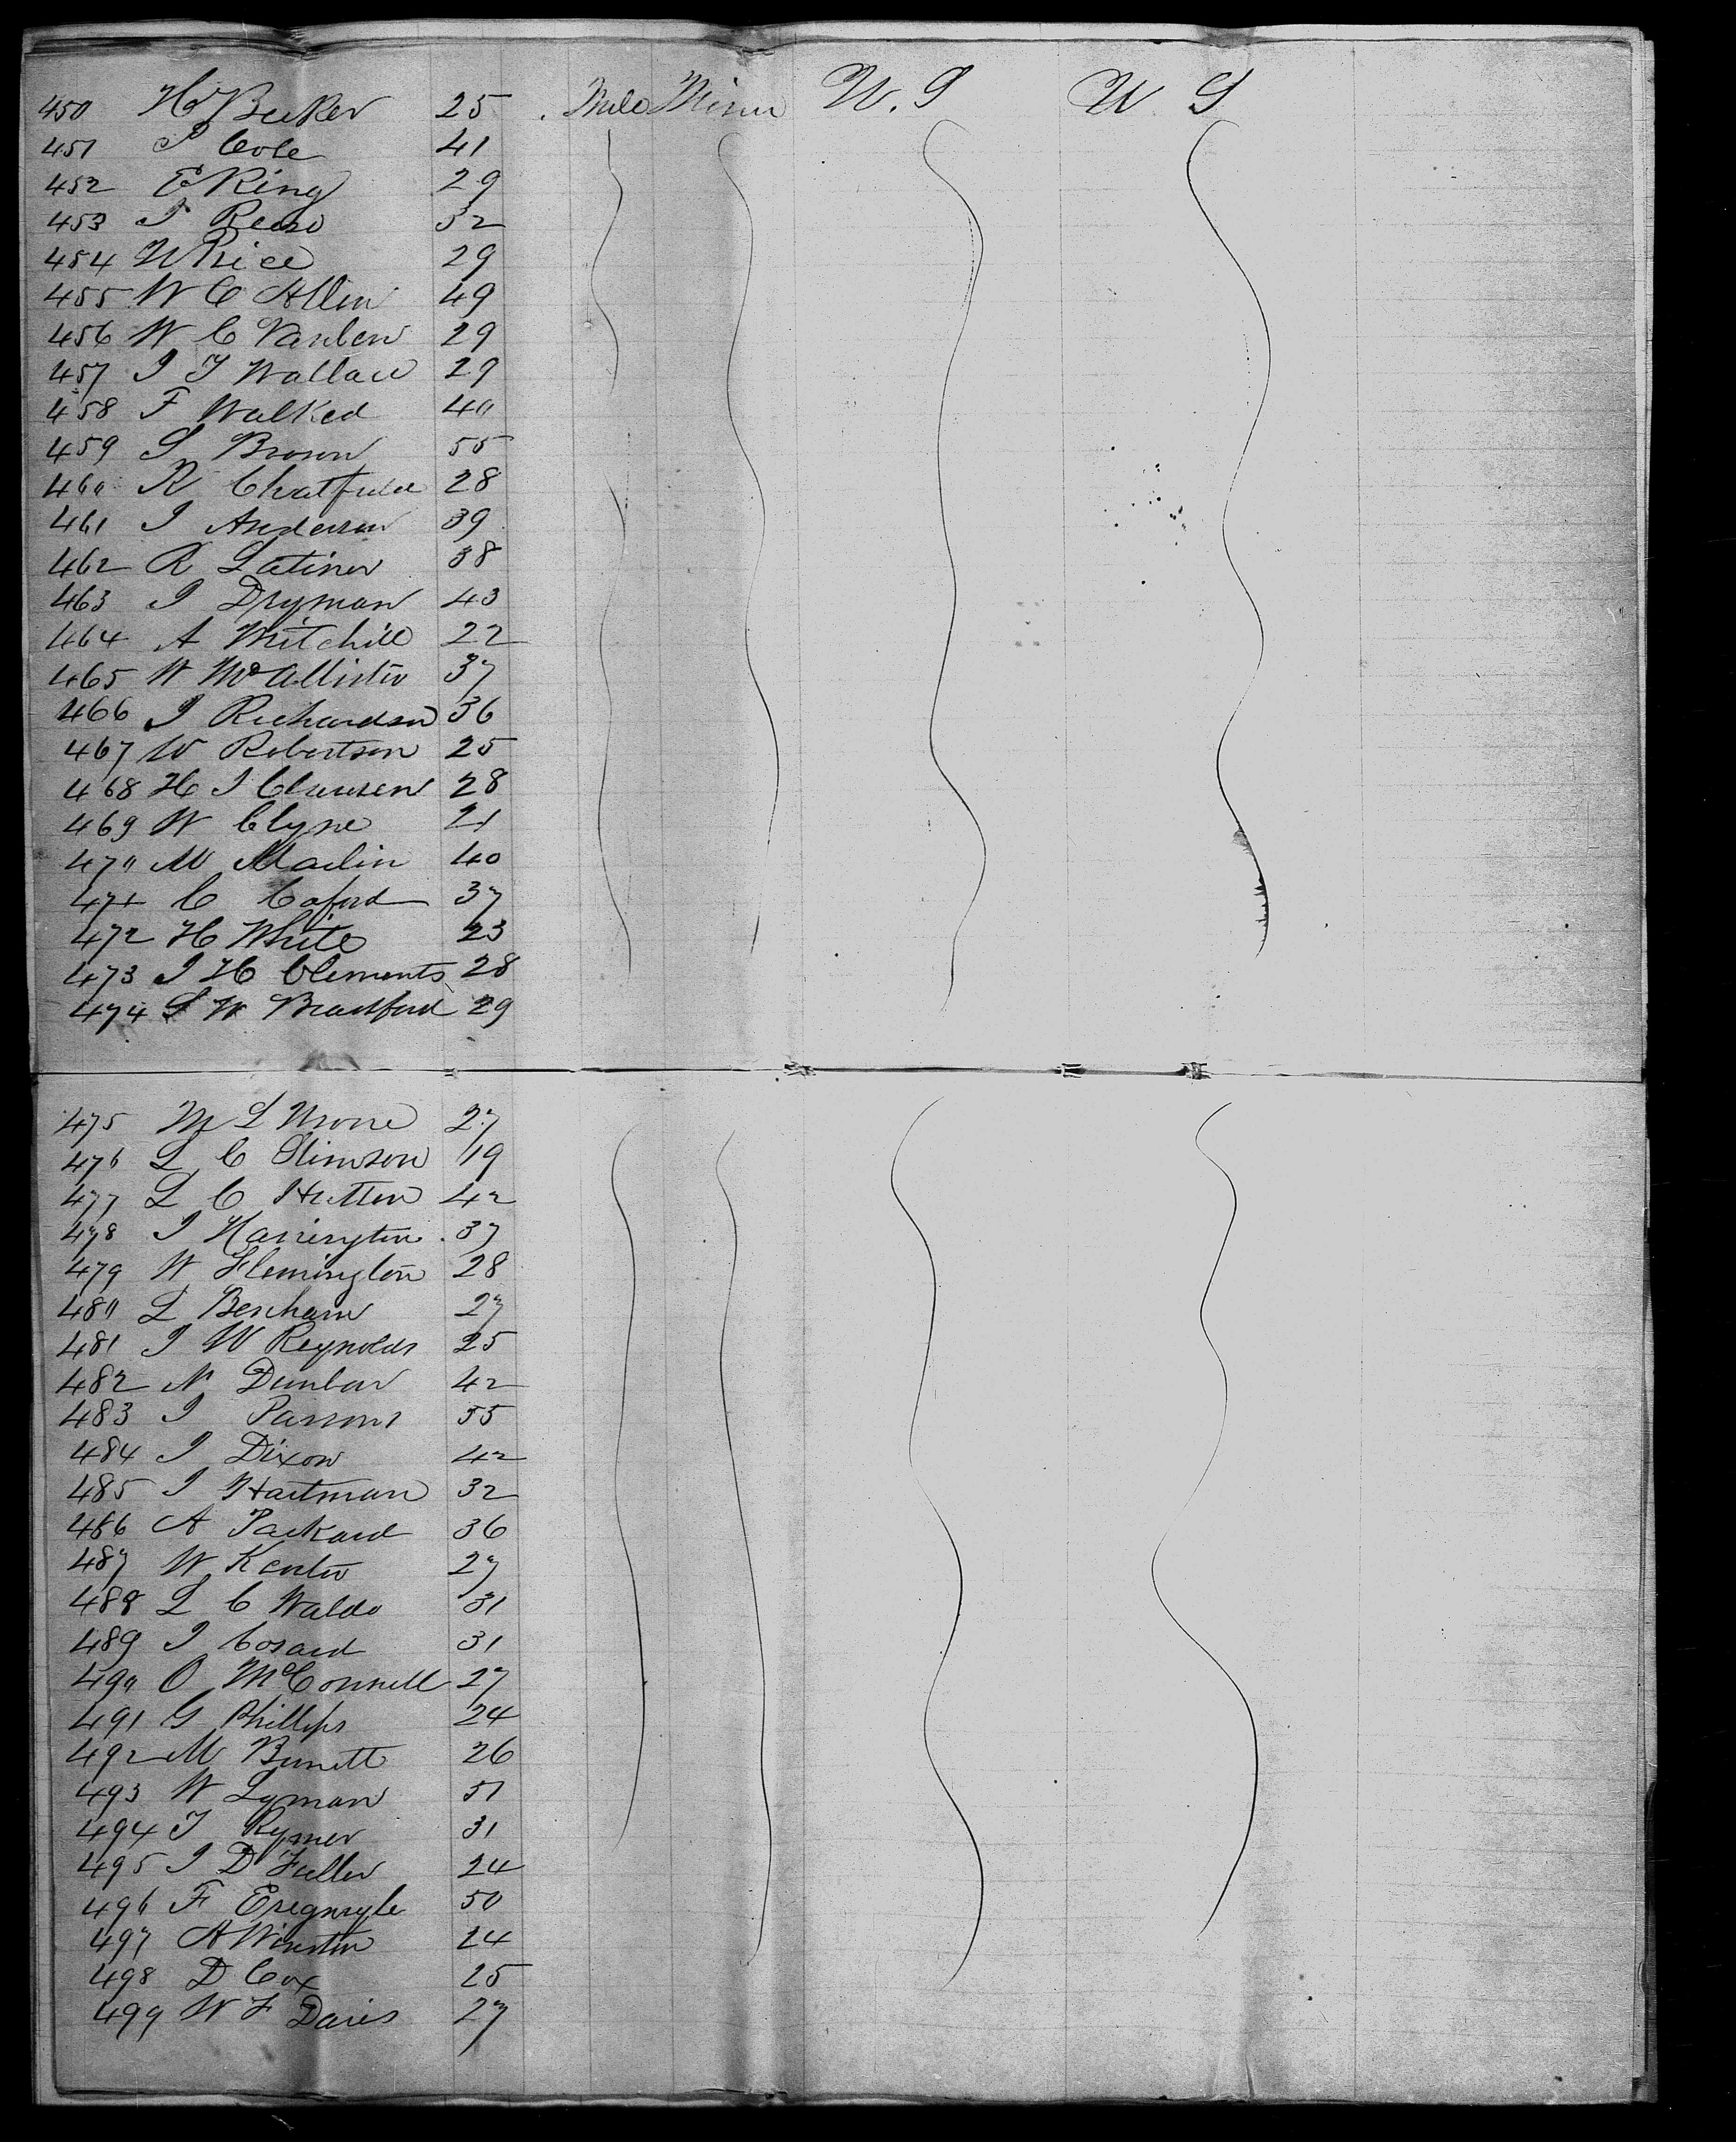 450 H Becker 25 Male Miner U.S U S
451 J Cole 41
452 E King 29
453 J 32
454 W Rice 29
455 W C Allen 49
456 W C 29
457 J T Wallace 29
458 F Walked 40
459 S Brown 55
460 R Chatfield 28
461 J Anderson 39
462 R Latimer 38
463 J Dryman 43
464 A Mitchill 22
465 W McAllister 37
466 J Richardson 36
467 W Robertson 25
468 H J Clausen 28
469 W Clyne 21
470 M Maclin 40
471 C Caford 37
472 H White 23
473 J H Clements 28
474 S W Bradford 29
475 M L 27
476 L C Stimson 19
477 L C Hutton 42
478 J Harrington 37
479 W Flemington 28
480 L Benham 27
481 J W Reynolds 25
482 N Dunbar 42
483 J Parsons 55
484 J Dixon 42
485 J Hartman 32
486 A Packard 36
487 W Kenter 27
488 L C Waldo 31
489 J Cosard 31
490 O McConnell 27
491 G Phillips 24
492 M Burnett 26
493 W Lyman 51
494 T Rymer 31
495 J D Fuller 24
496 F 50
497 A Winston 24
498 D Cox 25
499 W F Davis 27